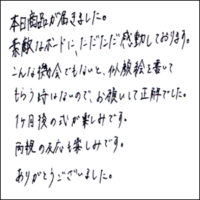 本日商品が届きました。
素敵なボードに、ただただ感動しております。
こんな機会でもないと、似顔絵を書いて
もらう時はないので、お願いして正解でした。
1ヶ月後の式が楽しみです。
両親の反応も楽しみです。
ありがとうございました。